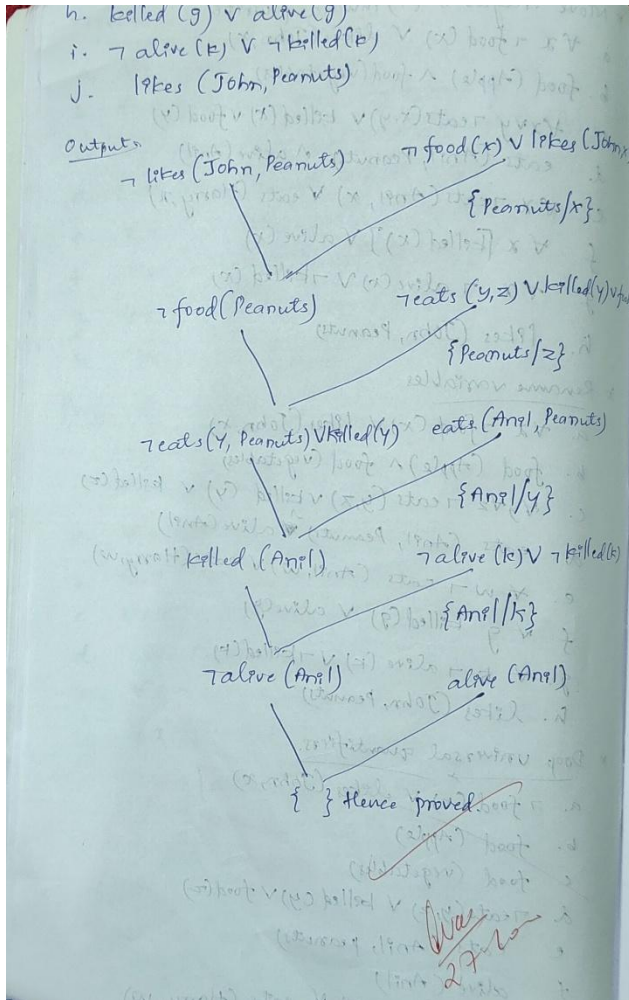 h. killed (g) ∨ alive(g)
i. ¬ alive (k) ∨ ¬killed(k)
j. likes (John, Peanuts)
Output:
¬ likes (John, Peanuts) ¬ food (x) ∨ likes (John,x
{Peanuts/x}
¬ food (Peanuts) ¬eats (y,z) ∨ killed(y) ∨
{Peanuts/z}
¬eats (y, Peanuts) ∨ killed (y) eats (Anil, Peanuts)
{Anil/y}
killed (Anil) ¬alive (k) ∨ ¬killed(k)
{Anil/k}
¬alive (Anil) alive (Anil)
{ } Hence proved.